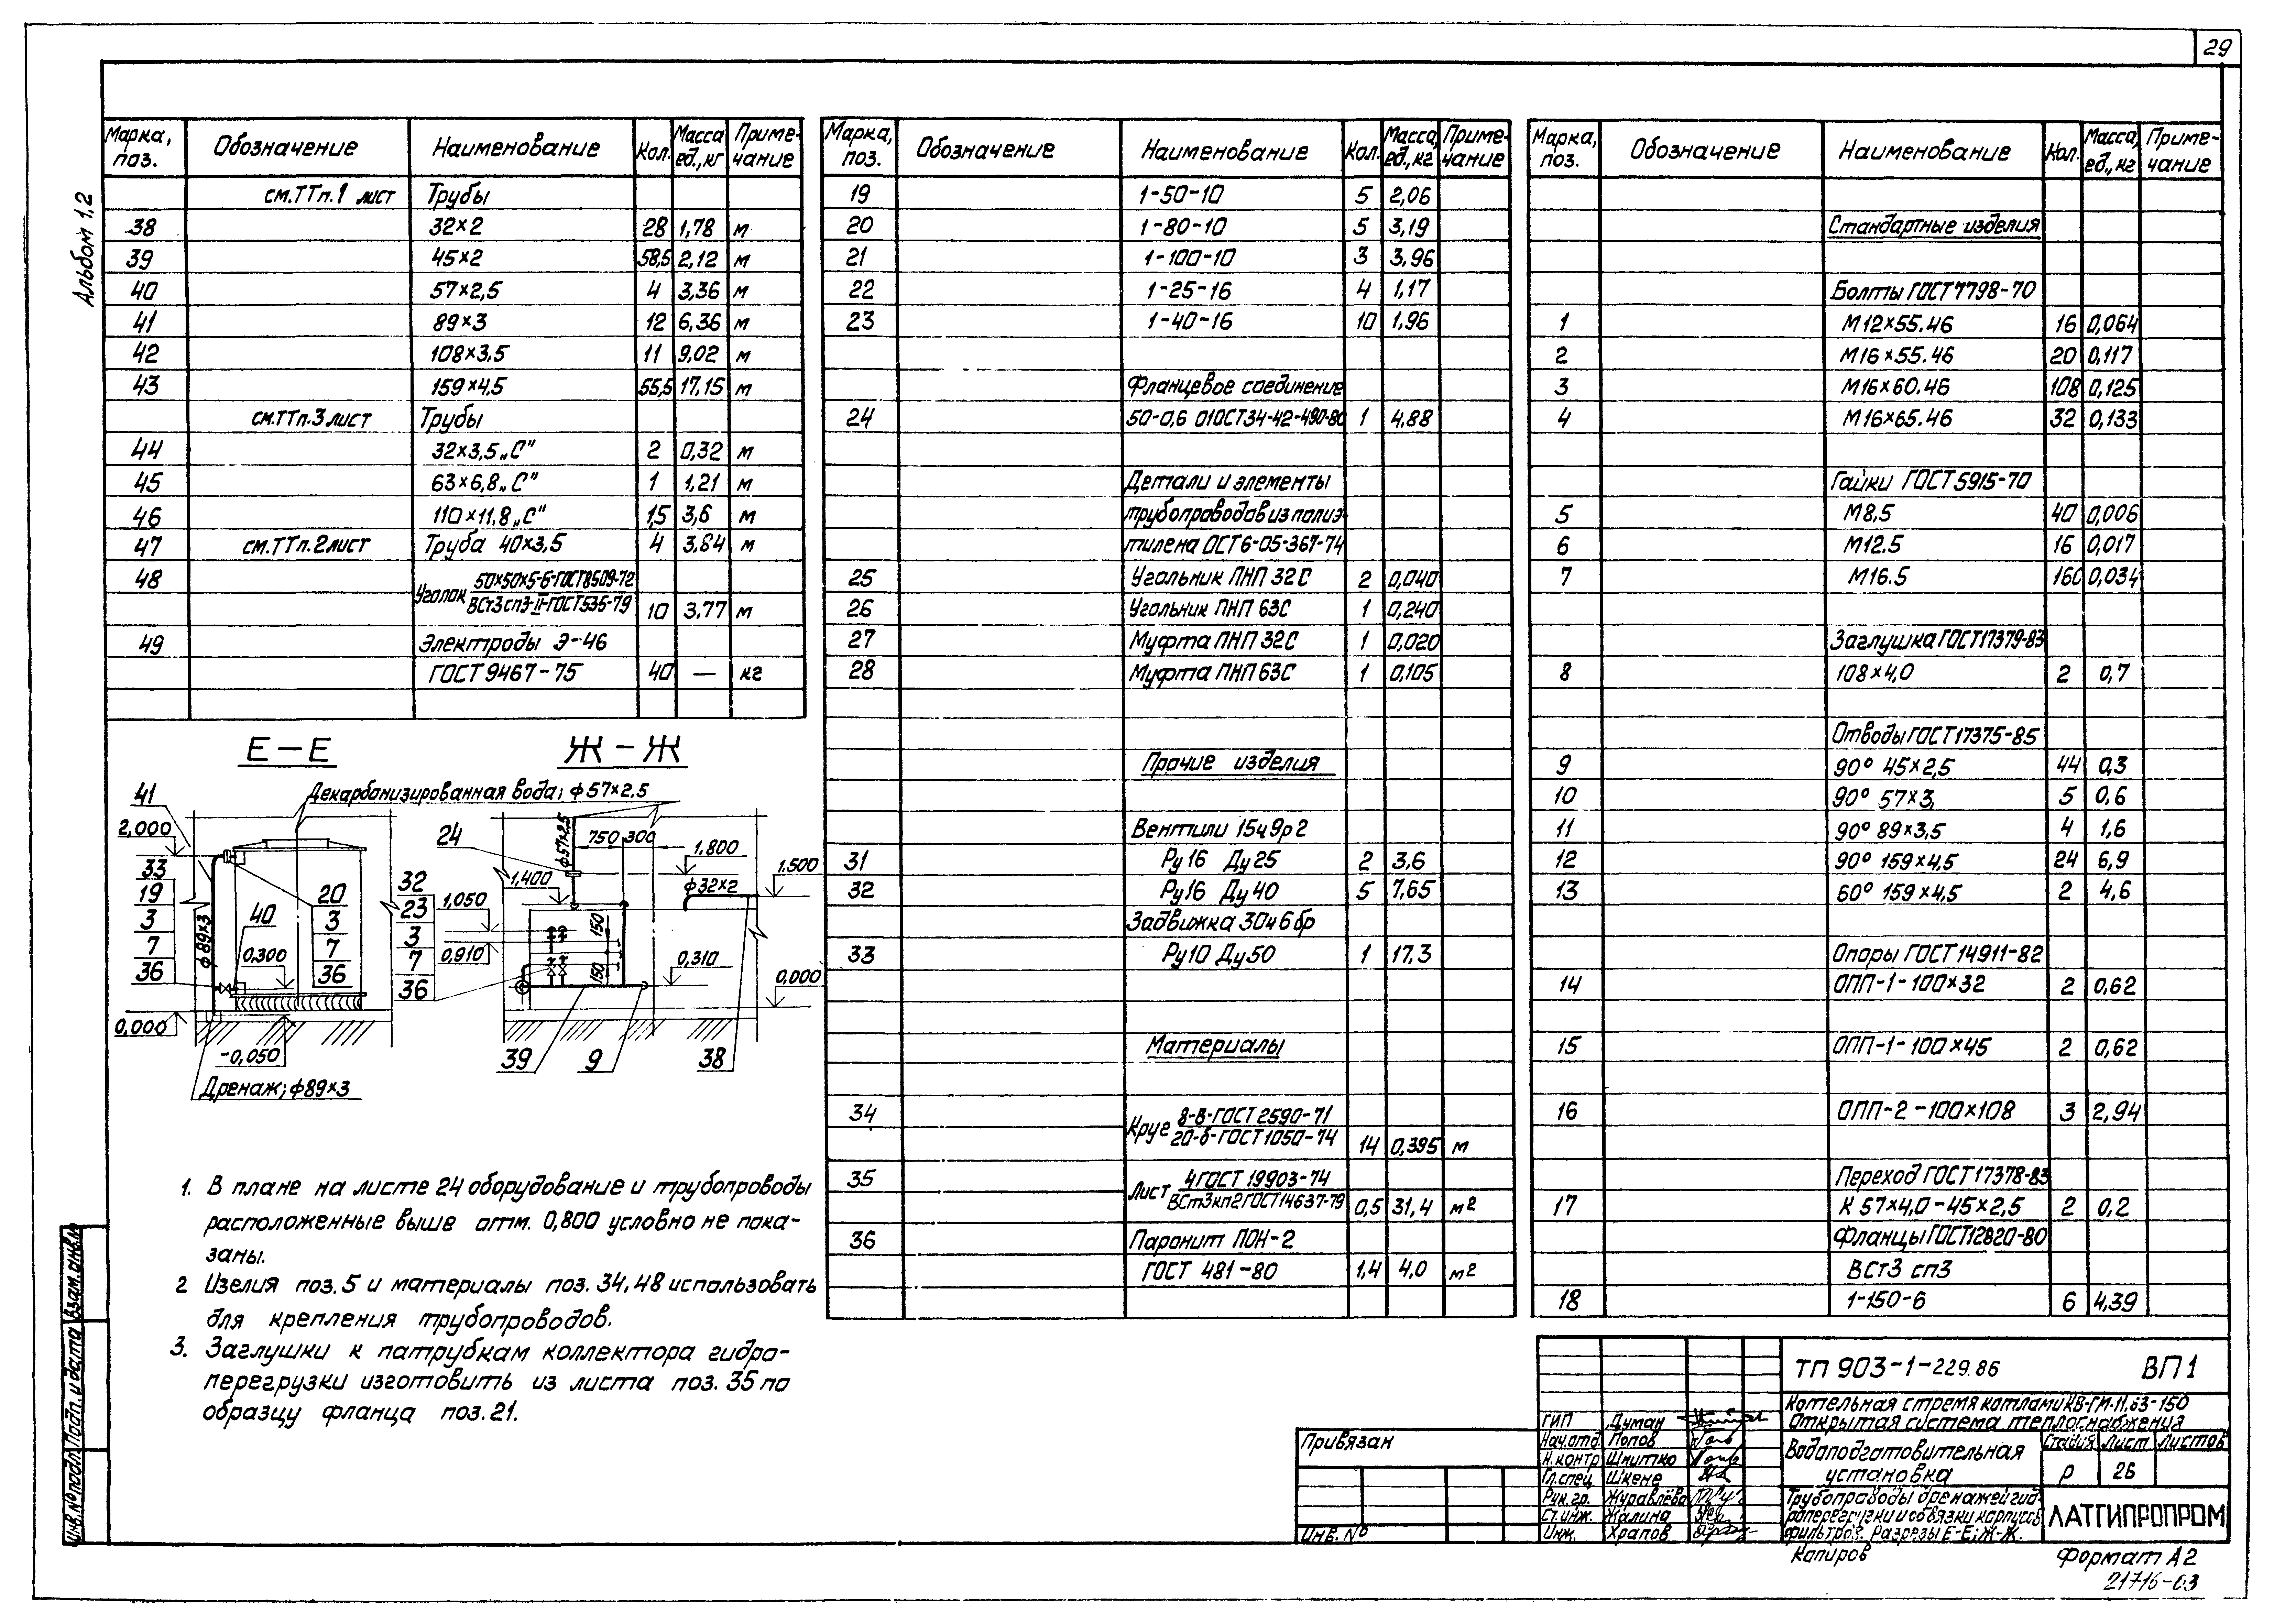 29
Альбом 1.2
Марка, поз. Обозначение Наименование Кол. Масса ед., кг Примечание
см. ТТп.1 лист Трубы
38 32×2 28 1,78 м
39 45×2 58,5 2,12 м
40 57×2,5 4 3,36 м
41 89×3 12 6,36 м
42 108×3,5 11 9,02 м
43 159×4,5 55,5 17,15 м
см. ТТп.3 лист Трубы
44 32×3,5 „С" 2 0,32 м
45 63×6,8 „С" 1 1,21 м
46 110×11,8 „С" 1,5 3,6 м
47 см. ТТп.2 лист Труба 40×3,5 4 3,84 м
48 Уголок 50×50×5-Б-ГОСТ 8509-72
ВСт3сп3-II-ГОСТ 535-79 10 3,77 м
49 Электроды Э-46
ГОСТ 9467-75 40 — кг
Марка, поз. Обозначение Наименование Кол. Масса, ед., кг Примечание
19 1-50-10 5 2,06
20 1-80-10 5 3,19
21 1-100-10 3 3,96
22 1-25-16 4 1,17
23 1-40-16 10 1,96
Фланцевое соединение
24 50-0,6 01ОСТ34-42-490-80 1 4,88
Детали и элементы
трубопроводов из полиэ-
тилена ОСТ 6-05-367-74
25 Угольник ПНП 32С 2 0,040
26 Угольник ПНП 63С 1 0,240
27 Муфта ПНП 32С 1 0,020
28 Муфта ПНП 63С 1 0,105
Прочие изделия
Вентили 15ч9р2
31 Ру16 Ду25 2 3,6
32 Ру16 Ду40 5 7,65
Задвижка 30ч6бр
33 Ру10 Ду50 1 17,3
Материалы
34 Круг 8-В-ГОСТ 2590-71
20-б-ГОСТ 1050-74 14 0,395 м
35 Лист 4 ГОСТ 19903-74
ВСт3кп2 ГОСТ 14637-79 0,5 31,4 м2
36 Паронит ПОН-2
ГОСТ 481-80 1,4 4,0 м2
Марка, поз. Обозначение Наименование Кол. Масса, ед., кг Примечание
Стандартные изделия
Болты ГОСТ 7798-70
1 М12×55.46 16 0,064
2 М16×55.46 20 0,117
3 М16×60.46 108 0,125
4 М16×65.46 32 0,133
Гайки ГОСТ 5915-70
5 М8.5 40 0,006
6 М12.5 16 0,017
7 М16.5 160 0,034
Заглушка ГОСТ 17379-83
8 108×4,0 2 0,7
Отводы ГОСТ 17375-85
9 90° 45×2,5 44 0,3
10 90° 57×3, 5 0,6
11 90° 89×3,5 4 1,6
12 90° 159×4,5 24 6,9
13 60° 159×4,5 2 4,6
Опоры ГОСТ 14911-82
14 ОПП-1-100×32 2 0,62
15 ОПП-1-100×45 2 0,62
16 ОПП-2-100×108 3 2,94
Переход ГОСТ 17378-83
17 К 57×4,0-45×2,5 2 0,2
Фланцы ГОСТ 12820-80
ВСт3 сп3
18 1-150-6 6 4,39
Е-Е Ж-Ж
Декарбонизированная вода; ф57×2,5
41
2,000
33
19
3
7
36
ф89×3
40
0,300
20
3
7
36
0,000
-0,050
Дренаж; ф89×3
24
ф57×2,5
750 300
1,800
1,400
1,500
ф32×2
32
23
3
7
36
1,050
0,910
150
150
0,310
0,000
39 9 38
1. В плане на листе 24 оборудование и трубопроводы
расположенные выше отм. 0,800 условно не пока-
заны.
2 Изелия поз. 5 и материалы поз. 34, 48 использовать
для крепления трубопроводов.
3. Заглушки к патрубкам коллектора гидро-
перегрузки изготовить из листа поз. 35 по
образцу фланца поз. 21.
Взам. инв.№
Подп. и дата
Инв.№ подл.
Привязан
Инв. №
ТП 903-1-229.86 ВП1
Котельная с тремя котлами КВ-ГМ-11,63-150
Открытая система теплоснабжения
ГИП Думан
Нач.отд. Попов
Н.контр Шнитко
Гл.спец Шкене
Рук.гр. Журавлёва
Ст.инж. Жалина
Инж. Храпов
Водоподготовительная
установка
Стадия Лист Листов
Р 26
Трубопроводы дренажей гид-
роперегрузки и обвязки корпусов
фильтров. Разрезы Е-Е; Ж-Ж.
ЛАТГИПРОПРОМ
Копиров Формат А2
21716-03